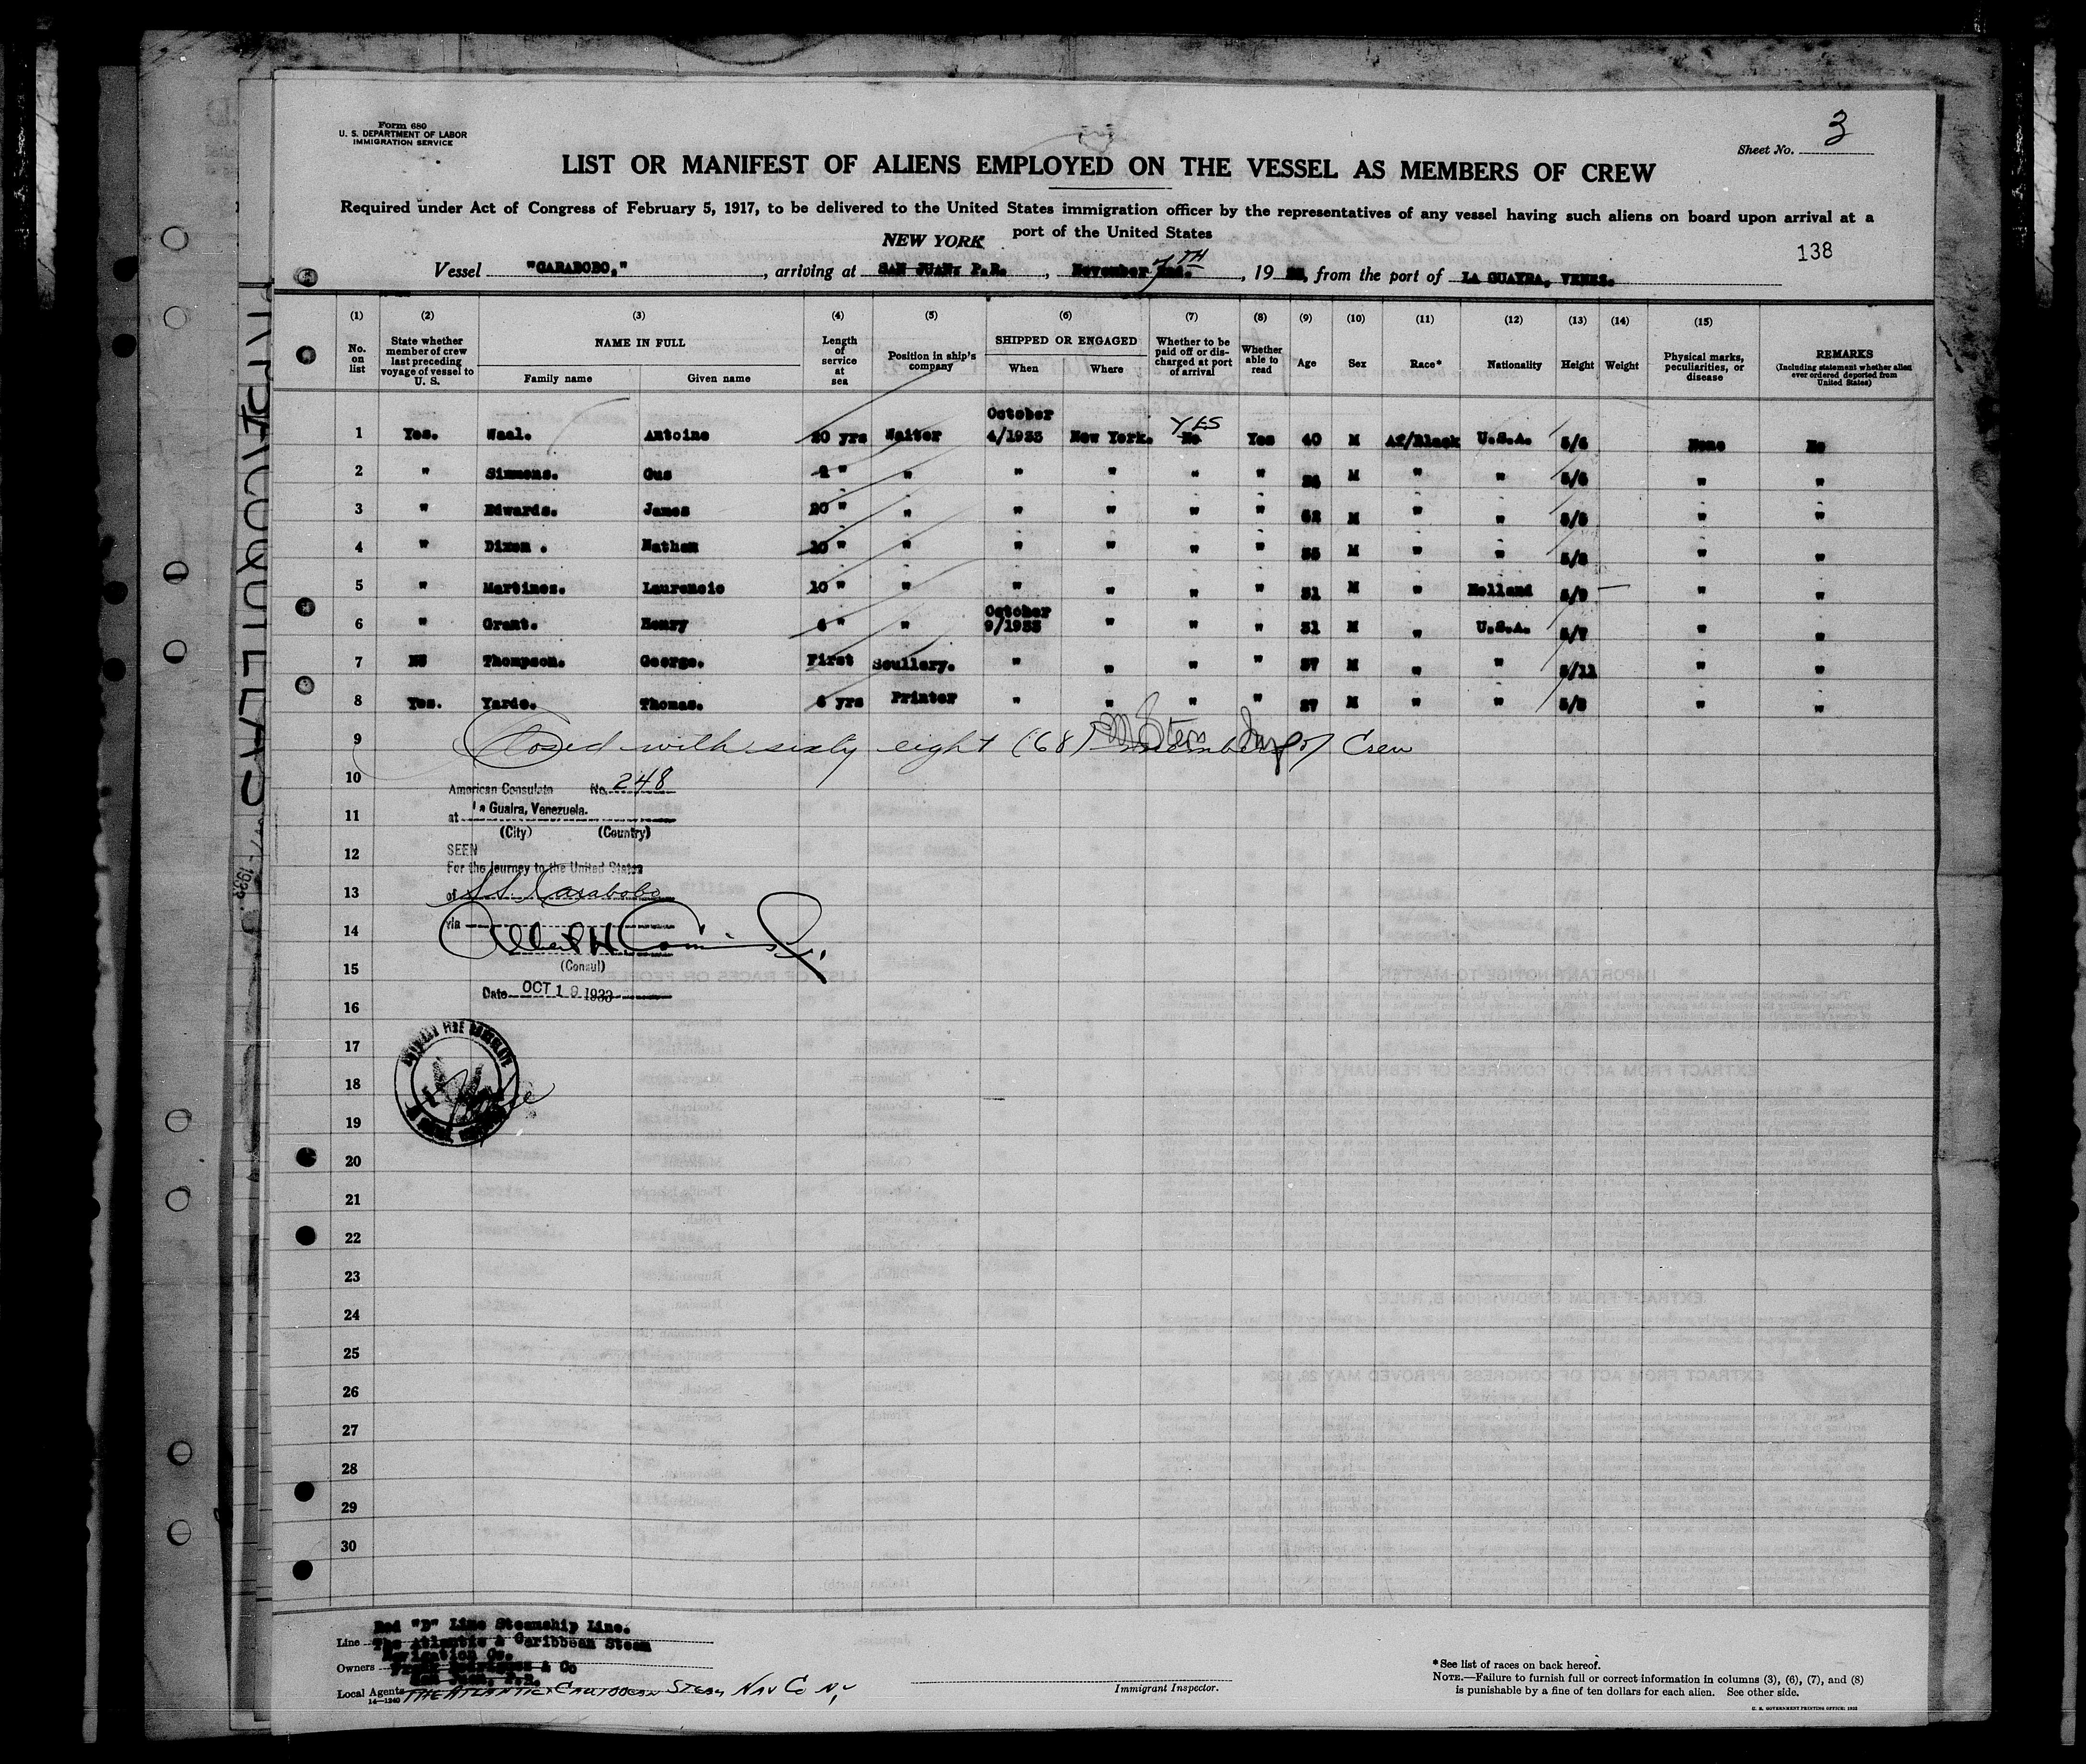 Form 680
U. S. DEPARTMENT OF LABOR
IMMIGRATION SERVICE
Sheet No. 3
LIST OR MANIFEST OF ALIENS EMPLOYED ON THE VESSEL AS MEMBERS OF CREW
Required under Act of Congress of February 5, 1917, to be delivered to the United States immigration officer by the representatives of any vessel having such aliens on board upon arrival at a
port of the United States
NEW YORK
138
Vessel "CARABOBO," , arriving at SAN JUAN, P.R. , November 7TH , 19 , from the port of LA GUAYRA, VENEZ.
(1) (2) (3) (4) (5) (6) (7) (8) (9) (10) (11) (12) (13) (14) (15)
No. on list
State whether member of crew last preceding voyage of vessel to U. S.
NAME IN FULL
Family name
Given name
Length of service at sea
Position in ship's company
SHIPPED OR ENGAGED
When
Where
Whether to be paid off or discharged at port of arrival
Whether able to read
Age
Sex
Race*
Nationality
Height
Weight
Physical marks, peculiarities, or disease
REMARKS
(Including statement whether alien ever ordered deported from United States)
1 Yes. Waal. Antoine 20 yrs Waiter October 4/1933 New York. No YES Yes 40 M Af/Black U.S.A. 5/6 None No
2 " Simmons. Gus 2 " " " " " " M " " 5/6 " "
3 " Edwards. James 20 " " " " " " 52 M " " 5/5 " "
4 " Dixon . Nathan 10 " " " " " " 35 M " " 5/8 " "
5 " Martines. Laurencio 10 " " " " " " 31 M " Holland 5/9 " "
6 " Grant. Henry 6 " " October 9/1933 " " " 31 M " U.S.A. 5/7 " "
7 No Thompson. George. First Scullery. " " " " 37 M " " 5/11 " "
8 Yes. Yarde. Thomas. 6 yrs Printer " " " " 27 M " " 5/8 " "
9 Closed with sixty eight (68) members of Crew
10
American Consulate No. 248
11
at La Guaira, Venezuela.
(City) (Country)
12
SEEN
For the journey to the United States
13
of S.S. Carabobo
14
via
15
(Consul)
Date OCT 19 1933
16
17
18
19
20
21
22
23
24
25
26
27
28
29
30
Red "D" Line Steamship Line.
Line The Atlantic & Caribbean Steam
Navigation Co.
Owners
San Juan, P.R.
Local Agents THE ATLANTIC & CARIBBEAN STEAM NAV CO NY
14—1240
Immigrant Inspector.
*See list of races on back hereof.
NOTE.—Failure to furnish full or correct information in columns (3), (6), (7), and (8)
is punishable by a fine of ten dollars for each alien. See other side.
U. S. GOVERNMENT PRINTING OFFICE: 1932